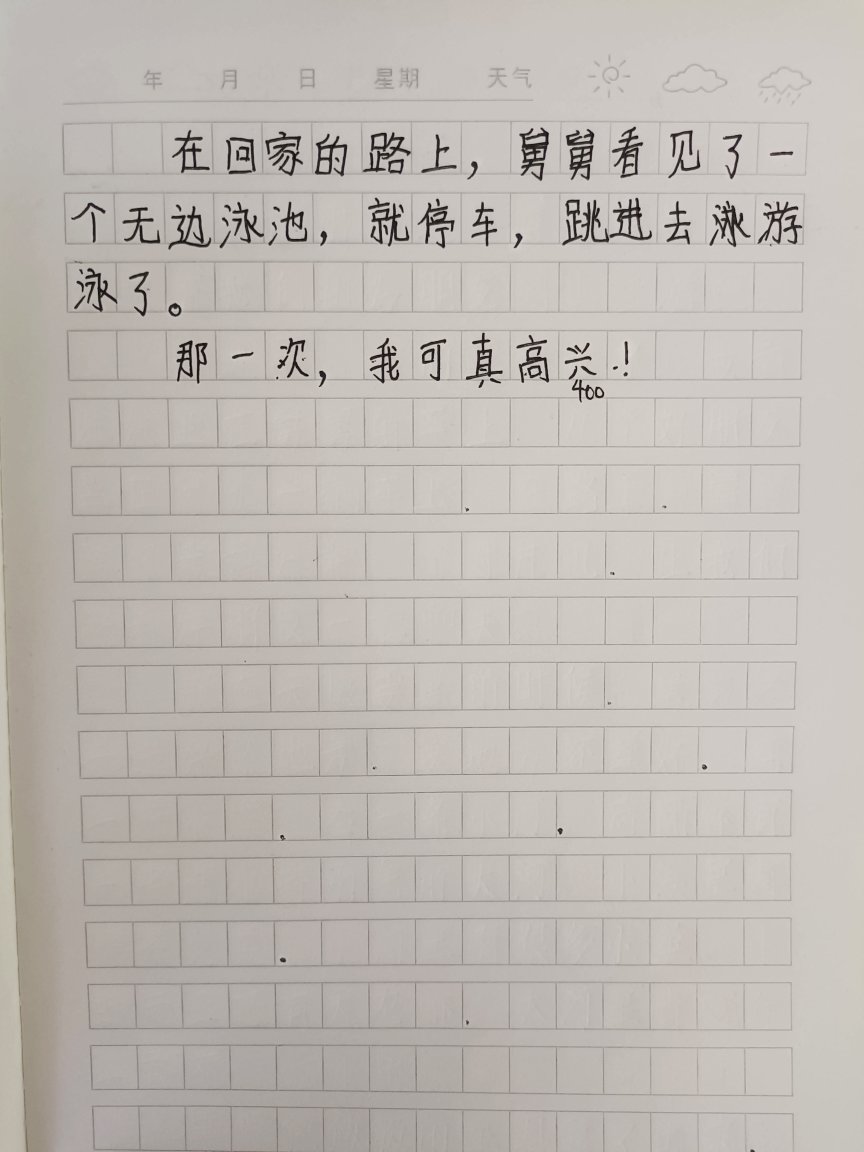 年 月 日 星期 天气
在回家的路上，舅舅看见了一
个无边泳池，就停车，跳进去泳游
泳了。
那一次，我可真高兴！
400